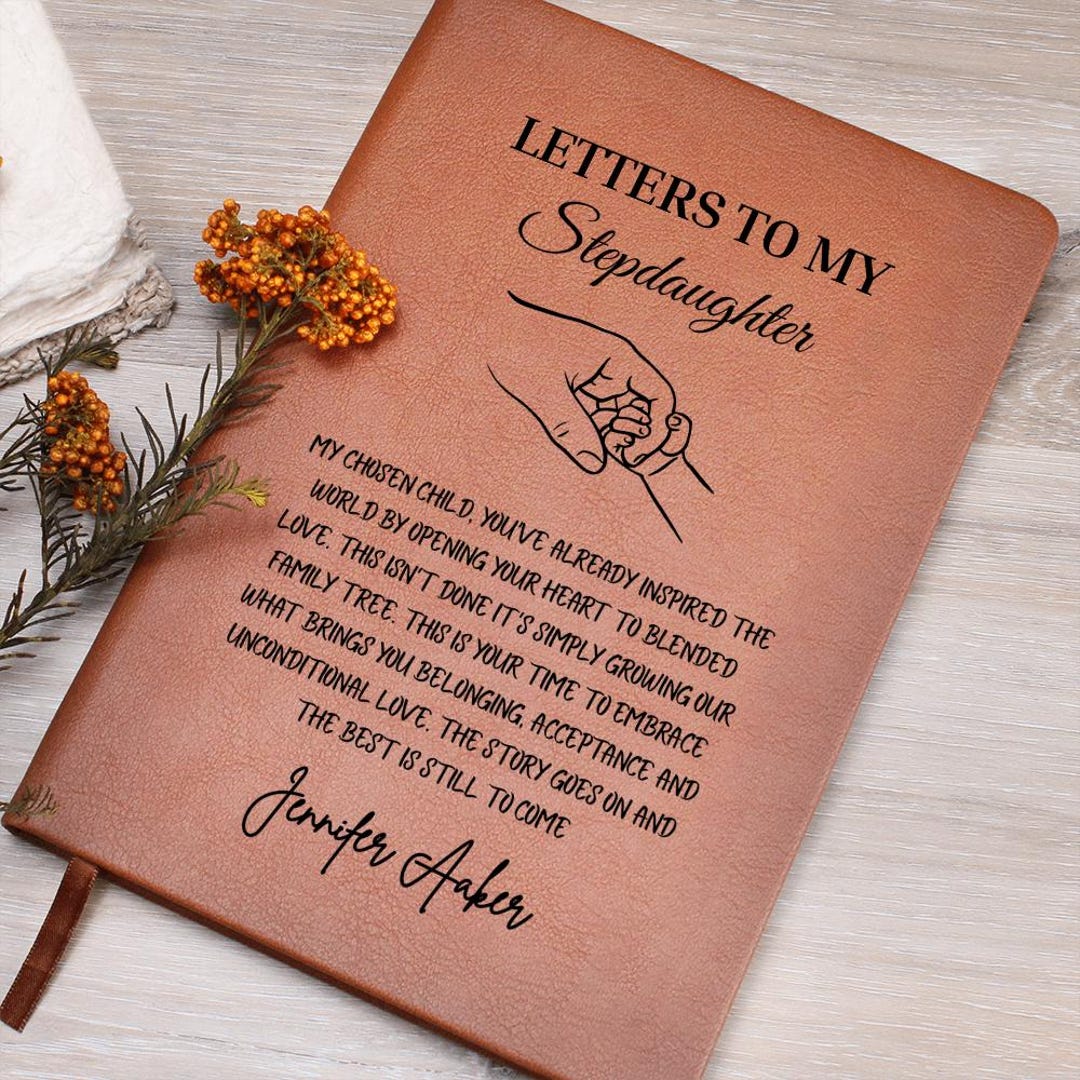 LETTERS TO MY
Stepdaughter
MY CHOSEN CHILD, YOU'VE ALREADY INSPIRED THE
WORLD BY OPENING YOUR HEART TO BLENDED
LOVE. THIS ISN'T DONE IT'S SIMPLY GROWING OUR
FAMILY TREE. THIS IS YOUR TIME TO EMBRACE
WHAT BRINGS YOU BELONGING, ACCEPTANCE AND
UNCONDITIONAL LOVE. THE STORY GOES ON AND
THE BEST IS STILL TO COME
Jennifer Aaker